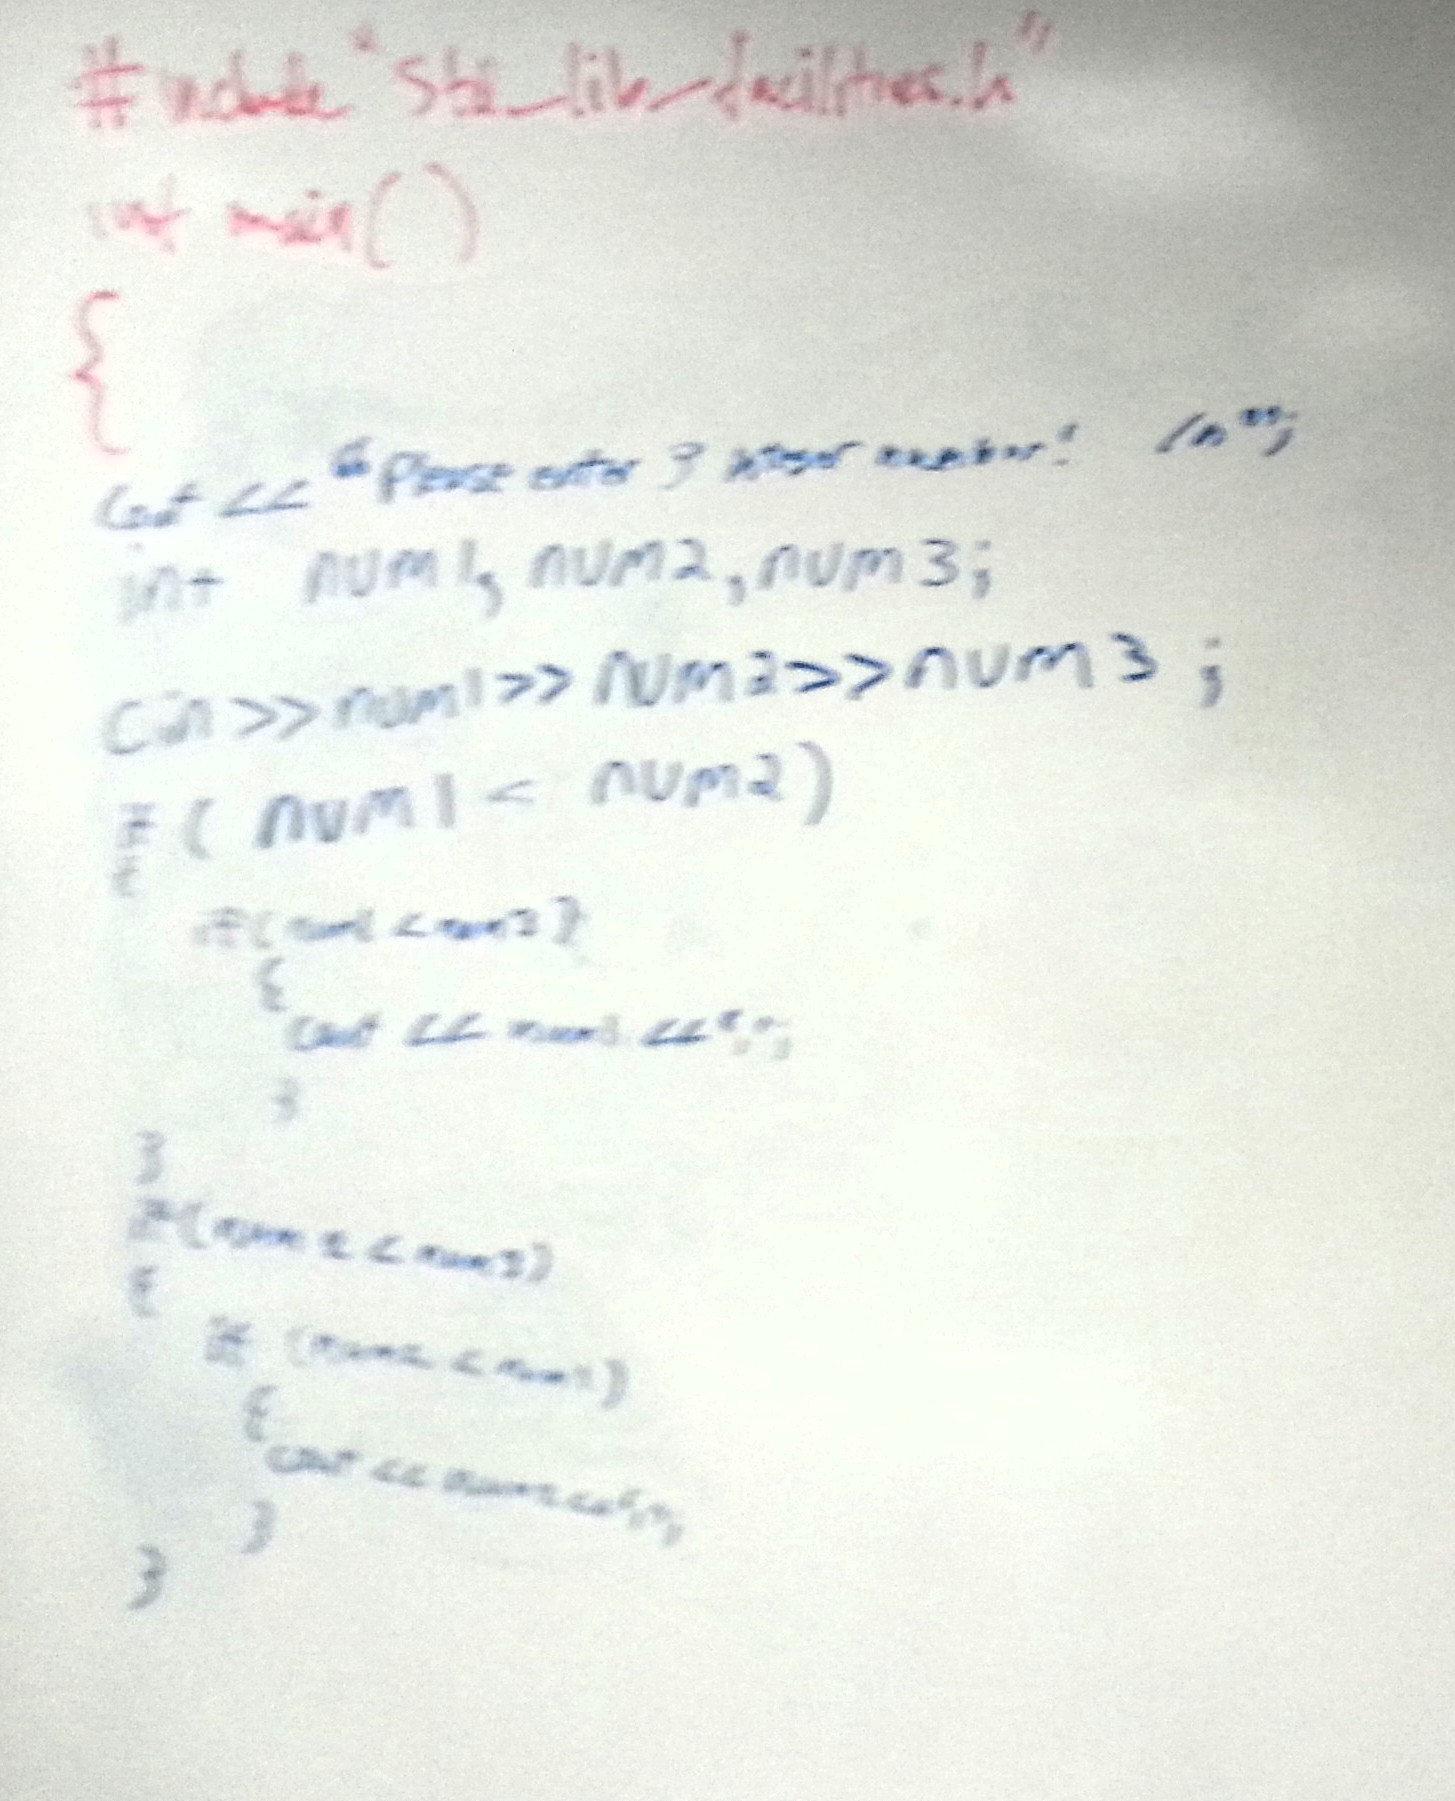 #include "std_lib_facilities.h"
int main()
{
cout << "Please enter 3 integer number! /n";
int num1, num2, num3;
Cin >> num1 >> num2 >> num3 ;
if ( num1 < num2 )
{
if ( num1 < num3 )
{
cout << num1 << ",";
}
}
if ( num2 < num3 )
{
if ( num2 < num1 )
{
cout << num2 << ",";
}
}